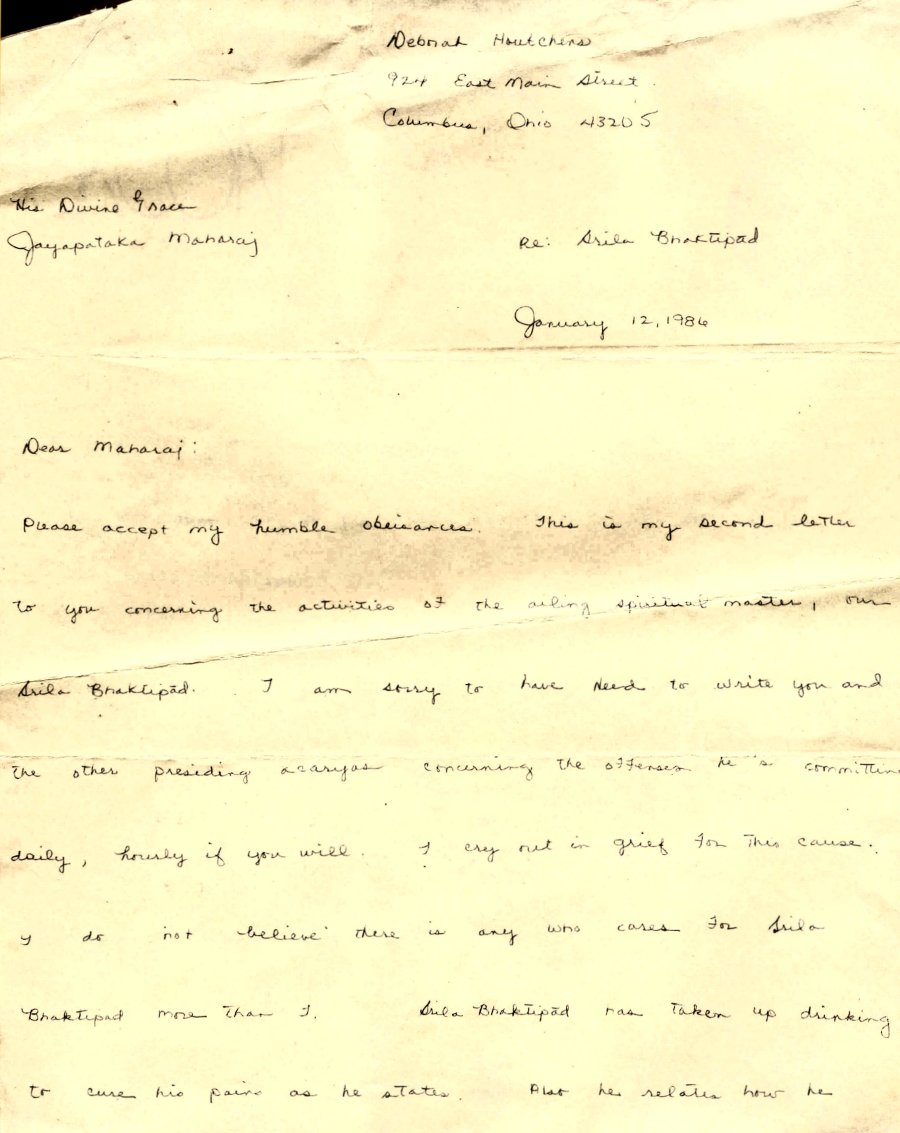 Deborah Houtchens
924 East Main Street
Columbus, Ohio 43205
His Divine Grace
Jayapataka Maharaj
Re: Srila Bhaktipād
January 12, 1986
Dear Maharaj:
Please accept my humble obeisances. This is my second letter
to you concerning the activities of the ailing spiritual master, our
Srila Bhaktipād. I am sorry to have need to write you and
the other presiding acaryas concerning the offenses he's committing
daily, hourly if you will. I cry out in grief for this cause.
I do not believe there is any who cares for Srila
Bhaktipad more than I. Srila Bhaktipād has taken up drinking
to cure his pains as he states. Also he relates how he